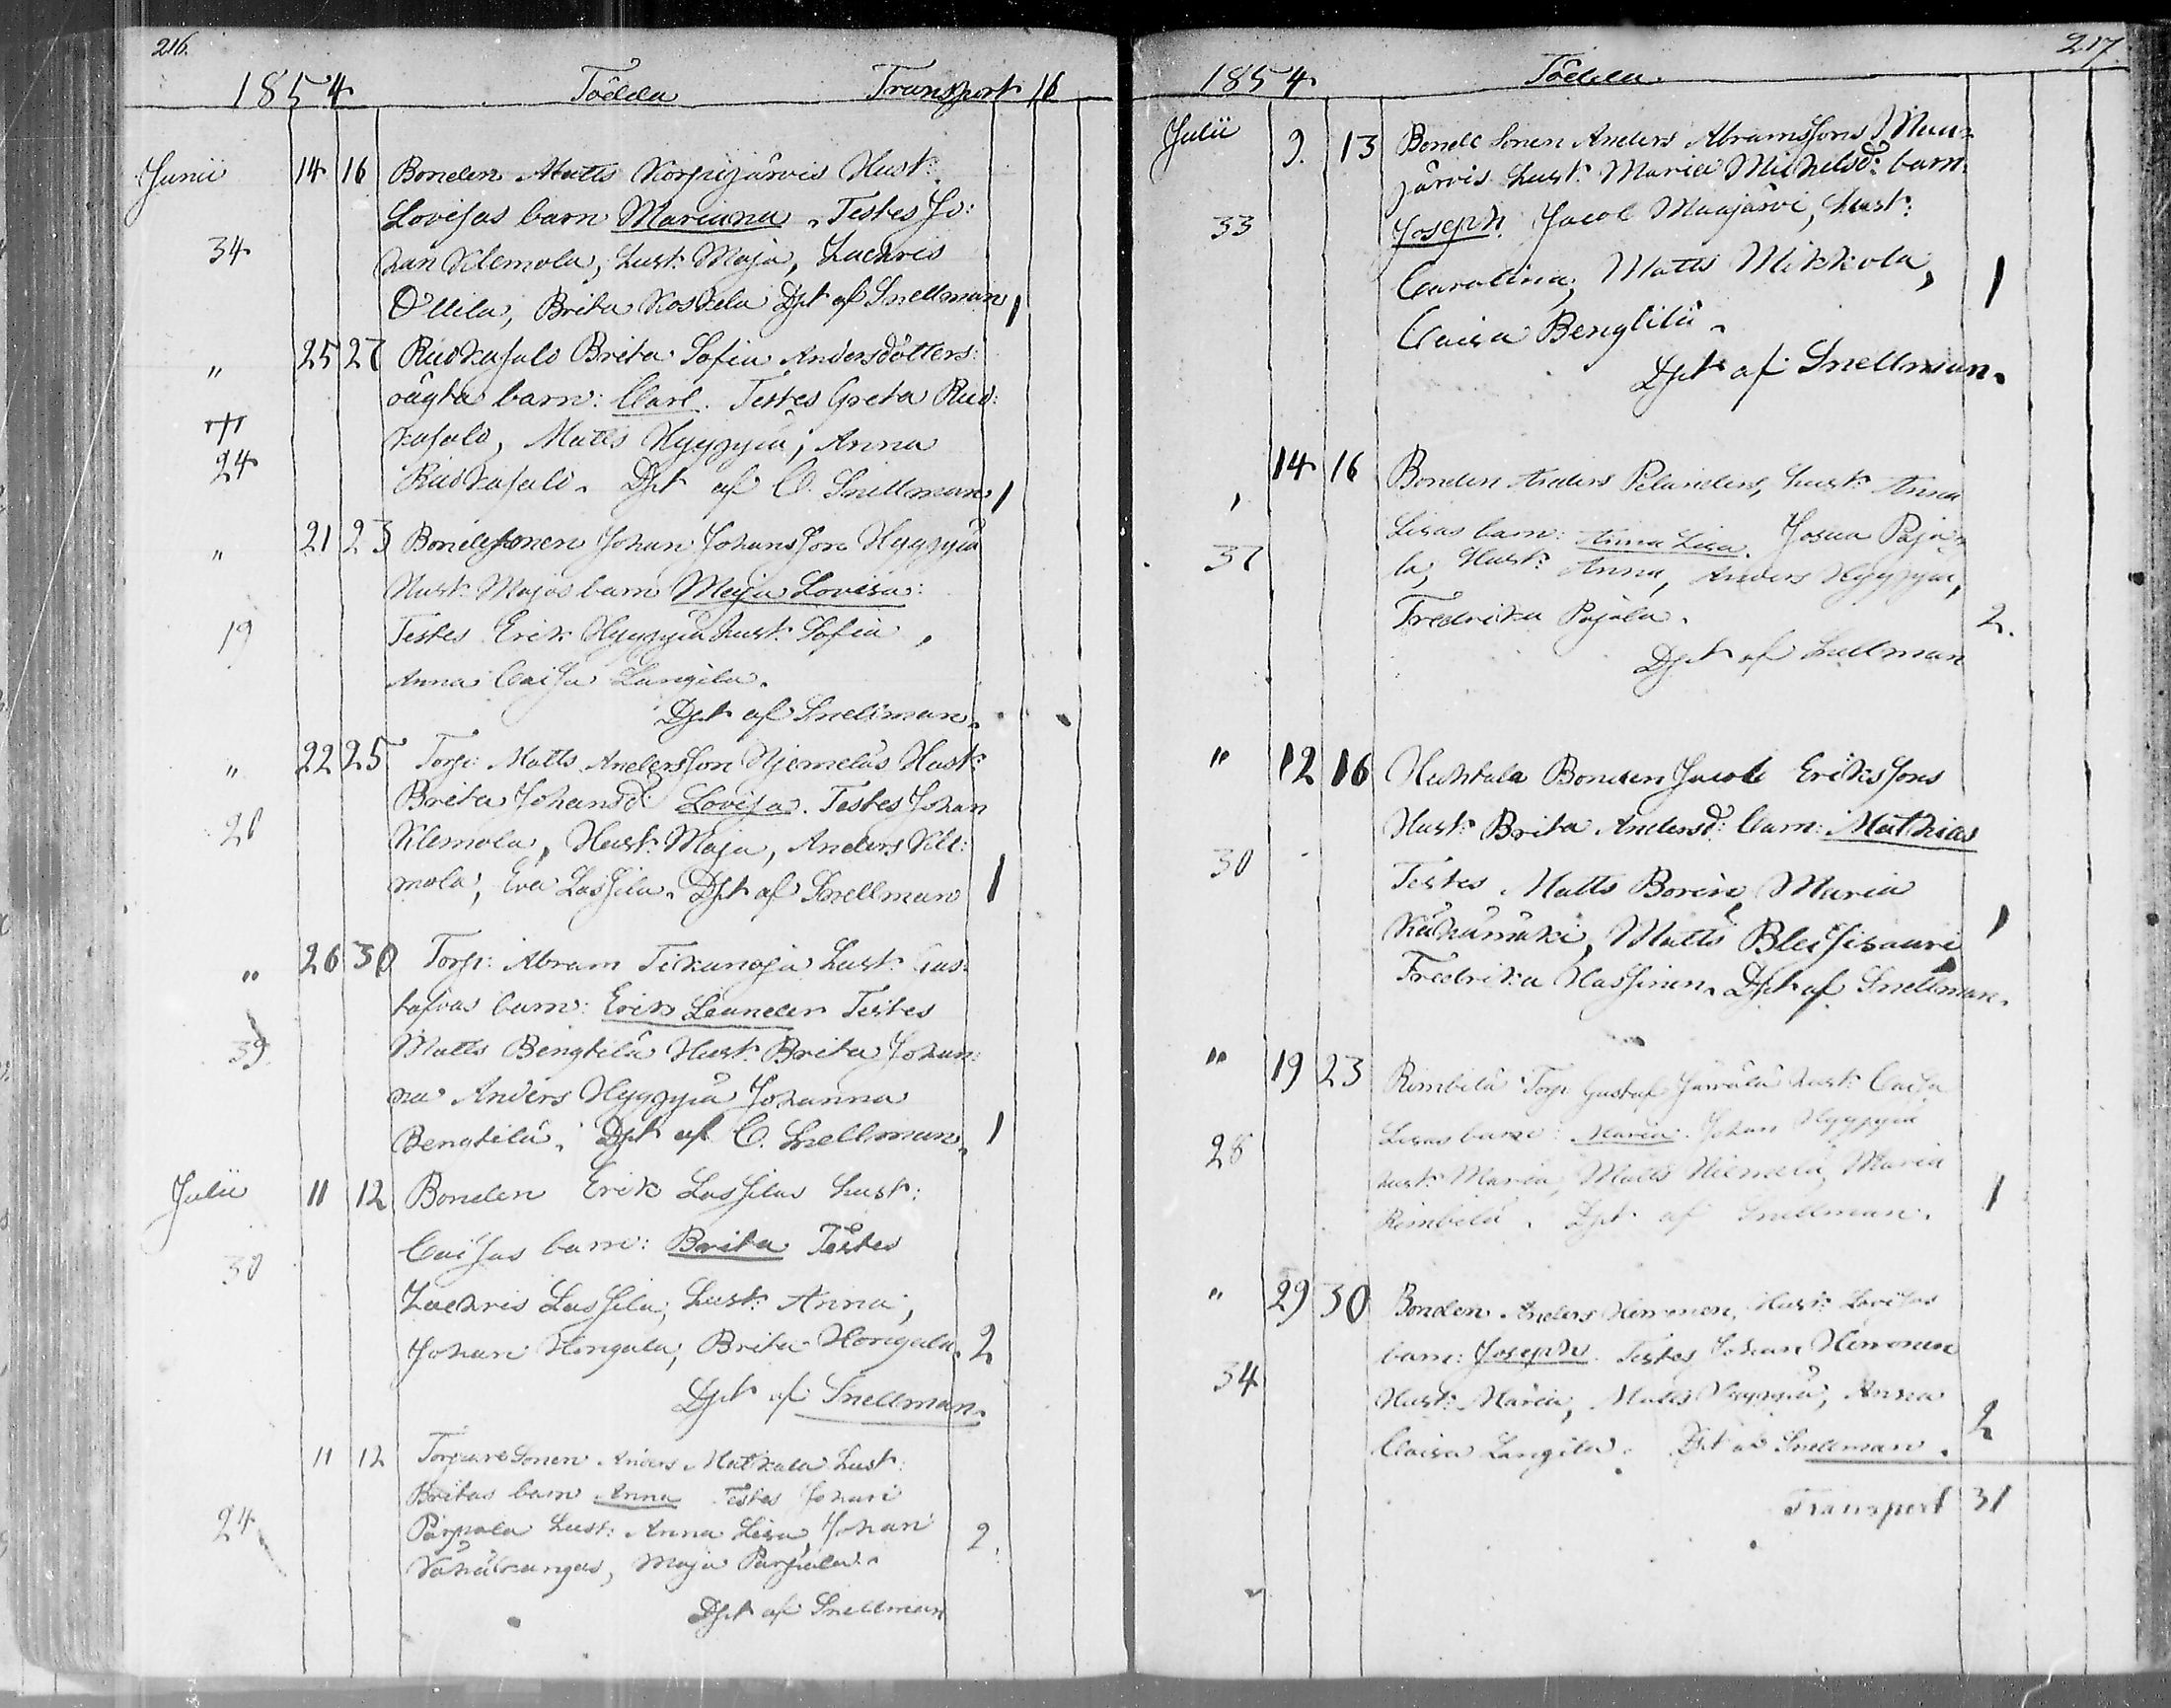 216.
1854 Födda Transport 16
Junii 14 16 Bonden Matts Korpijärvis Hust:
Lovisas barn Mariana. Testes Jo:
34 han Klemola, hust: Maja, Zachris
Ollila, Brita Koskela Dpt af Snellman 1
" 25 27 Ruokasalo Brita Sofia Andersdotters:
oägta barn: Carl. Testes Greta Ruo:
kasalo, Matts Hyyppä, Anna
24 Ruokasalo. Dpt af C. Snellman. 1
" 21 23 Bondesonen Johan Johansson Hyyppä
Hust: Majas barn Maja Lovisa:
19 Testes Erik Hyyppä hust: Sofia,
Anna Caisa Langila.
Dpt af Snellman.
" 22 25 Torp: Matts Andersson Njemeläs Hust:
Brita Johansd: Lovisa. Testes Johan
26 Klemola, Hust: Maja, Anders Kle:
mola, Eva Lassila. Dpt af Snellman 1
" 26 30 Torp: Abram Tikanoja hust: Gus:
tafvas barn: Erik Leander Testes
39 Matts Bengtilä Hust: Brita Johan:
na Anders Hyyppä Johanna
Bengtilä. Dpt af C. Snellman. 1
Julii 11 12 Bonden Erik Lassilas hust:
Caisas barn: Brita Testes
30 Zachris Lassila, hust: Anna,
Johan Hongala, Brita Hongala. 2
Dpt af Snellman.
11 12 Torpare Sonen Anders Matkala hust:
Britas barn Anna Testes Johan
24 Parpala hust: Anna Lisa, Johan
Vähäkangas, Maja Parpala. 2.
Dpt af Snellman
217.
1854. Födda.
Julii 9. 13 Bonde Sonen Anders Abramssons Maa:
järvis hust: Maria Michelsd: barn.
33 Joseph. Jacob Maajärvi, hust:
Carolina, Matts Mikkola, 1
Caisa Bengtilä.
Dpt af Snellman.
14 16 Bonden Anders Pelanders, hust: Anna
Lisas barn: Anna Lisa. Josua Paja:
37 la, Hust: Anna, Anders Hyyppä,
Fredrika Pajala. 2.
Dpt af Snellman
" 12 16 Huhtala Bonden Jacob Erikssons
Hust: Brita Andersd: barn: Mathias
30 Testes Matts Borin, Maria
Kähämäki, Matts 1
Fredrika Hassinen. Dpt af Snellman.
" 19 23 Rimbilä Torp: Gustaf Järvälä hust: Caisa
Lisas barn: Maria. Johan Hyyppä
28 hust: Maria, Matts Niemelä, Maria
Rimbilä. Dpt af Snellman. 1
" 29 30 Bonden Anders Hirvonen, Hust: Lovisas
barn: Joseph. Testes Johan Hirvonen
34 Hust: Maria, Matts Hyyppä, Anna
Caisa Langila. Dpt af Snellman. 2
Transport 31